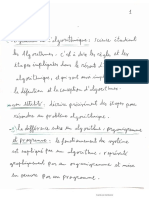 1
algorithmique : science étudiant
les algorithmes, c'est à dire les règles et les
étapes impliquées dans le
algorithmique, et qui sont
la définition et la conception d'algorithmes.
: décrire précisément des étapes pour
résoudre un problème algorithmique.
la différence entre un algorithme, organigramme
et programme : le fonctionnement du système
est expliqué par un algorithme, représenté
graphiquement par un organigramme et mise
en oeuvre par un programme.